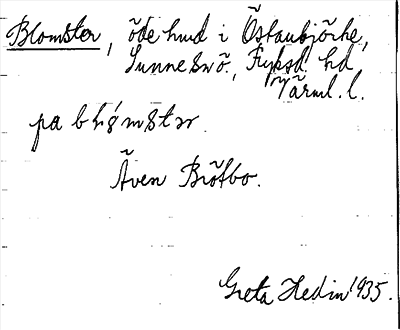 Blomster, öde hmd i Östanbjörke,
Sunne sn ö., Fryksd. hd
Värml. l.
pa blómstər
Även Brötbo.
Greta Hedin 1935.